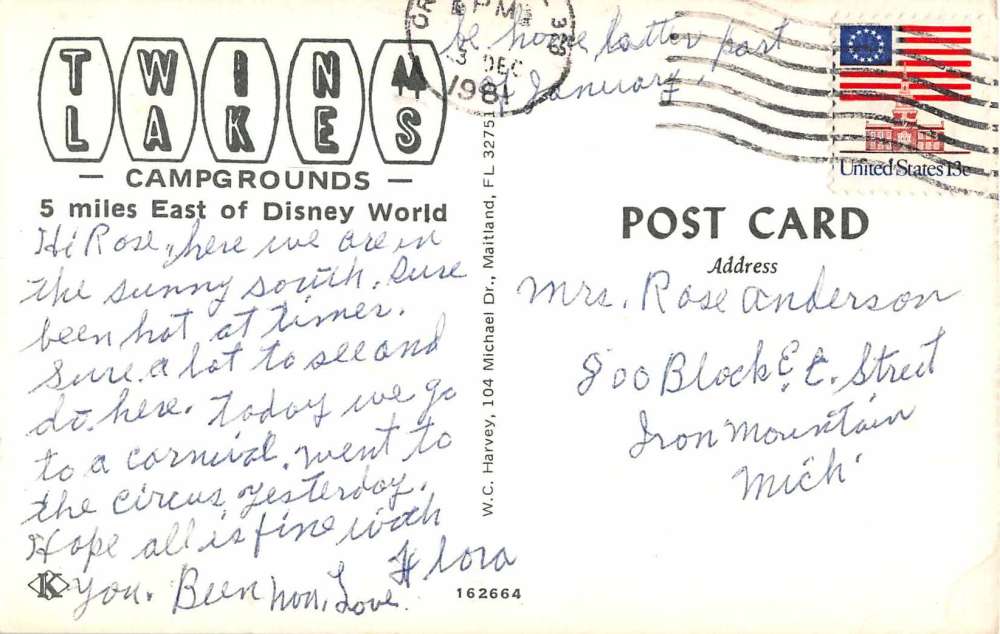 TWIN
LAKES
— CAMPGROUNDS —
5 miles East of Disney World
Hi Rose, here we are in
the sunny south. Sure
been hot at times.
Sure a lot to see and
do here. Today we go
to a carnival. went to
the circus yesterday.
Hope all is fine with
you. Been
Love
Flora
be home latter part
of January
OR
PM
3 DEC
1981
W.C. Harvey, 104 Michael Dr., Maitland, FL 32751
162664
K
United States 13c
POST CARD
Address
Mrs. Rose Anderson
800 Block E. C. Street
Iron Mountain
Mich